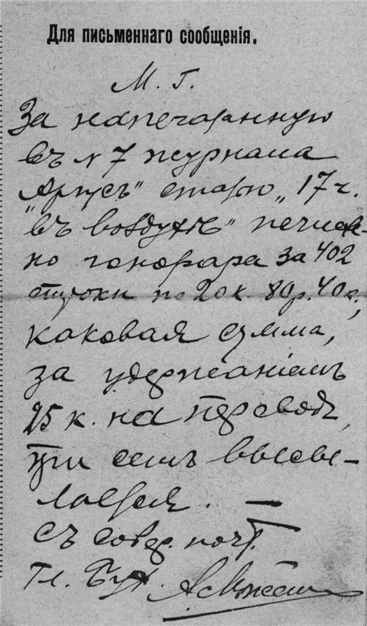 Для письменнаго сообщенія.
М. Г.
За напечатанную
въ № 7 журнала
„Аргусъ" статью „17 ч.
въ воздухѣ" исчисле-
но гонорара за 402
строки по 20 к. 80 р. 40 к.,
каковая сумма,
за удержаніемъ
25 к. на переводъ,
при семъ высы-
лается. —
Съ совер. почт.
Гл. Бух.